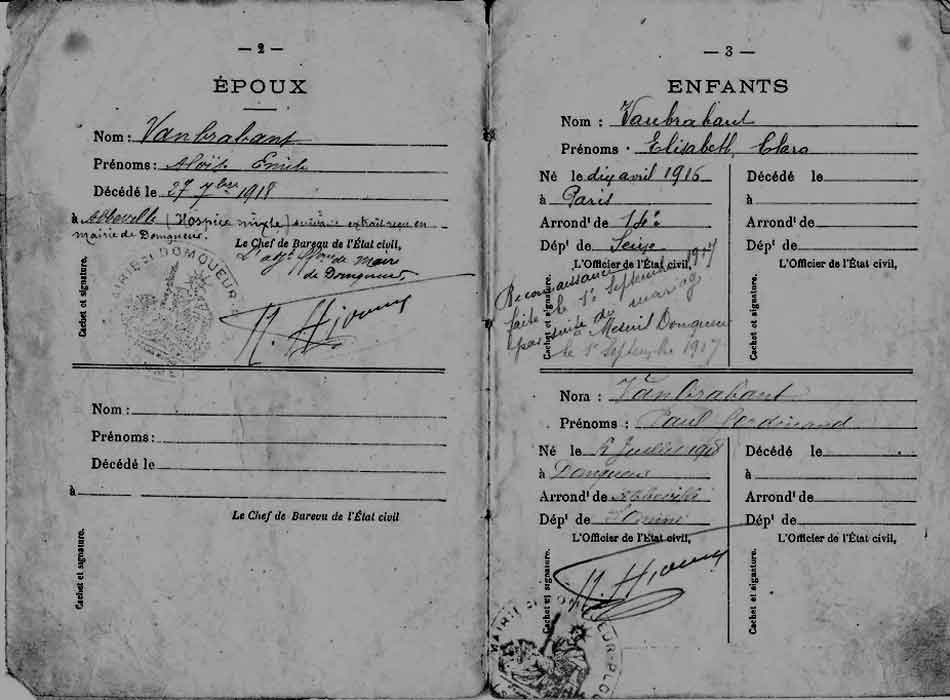 — 2 —
ÉPOUX
Nom: Vanbrabant
Prénoms: Aloïs Emile
Décédé le 27 7bre 1918
à Abbeville (Hospice mixte) suivant extrait reçu en
mairie de Domqueur.
Le Chef de Bureau de l'État civil,
de Maire
de Domqueur
Cachet et signature.
MAIRIE DE DOMQUEUR
Nom:
Prénoms:
Décédé le
à
Le Chef de Bureau de l'État civil
Cachet et signature.
— 3 —
ENFANTS
Nom: Vanbrabant
Prénoms Elisabeth, Clara
Né le dix avril 1916 Décédé le
à Paris à
Arrondt de 14e Arrondt de
Dépt de Seine Dépt de
L'Officier de l'État civil, L'Officier de l'État civil,
Reconnaissance
faite le 1er Septembre 1917
par suite de mariage
à Mesnil Domqueur
le 1er Septembre 1917
Cachet et signature. Cachet et signature.
Nom: Vanbrabant
Prénoms: Paul Ferdinand
Né le Juillet 1918 Décédé le
à Domqueur à
Arrondt de Abbeville Arrondt de
Dépt de Somme Dépt de
L'Officier de l'État civil, L'Officier de l'État civil,
Cachet et signature. Cachet et signature.
MAIRIE DE DOMQUEUR